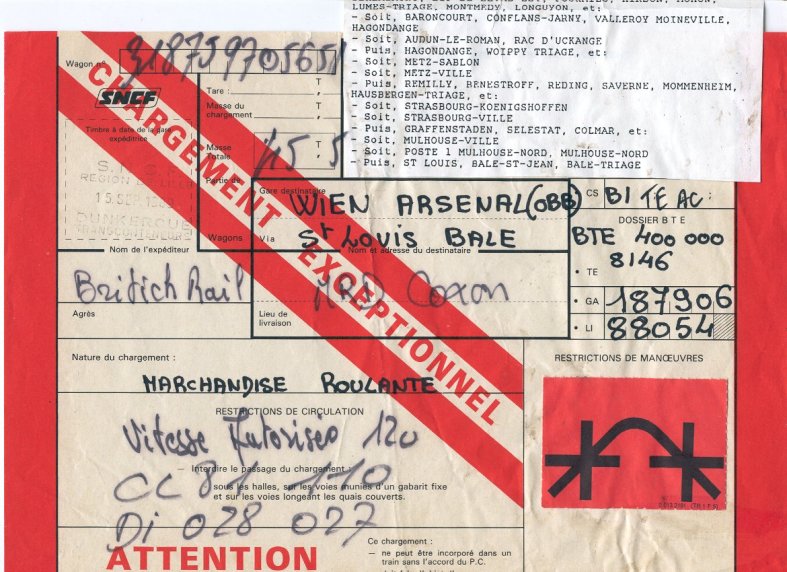 LUMES-TRIAGE, MONTMEDY, LONGUYON, et:
- Soit, BARONCOURT, CONFLANS-JARNY, VALLEROY MOINEVILLE,
HAGONDANGE
- Soit, AUDUN-LE-ROMAN, RAC D'UCKANGE
- Puis, HAGONDANGE, WOIPPY TRIAGE, et:
- Soit, METZ-SABLON
- Soit, METZ-VILLE
- Puis, REMILLY, BENESTROFF, REDING, SAVERNE, MOMMENHEIM,
HAUSBERGEN-TRIAGE, et:
- Soit, STRASBOURG-KOENIGSHOFFEN
- Soit, STRASBOURG-VILLE
- Puis, GRAFFENSTADEN, SELESTAT, COLMAR, et:
- Soit, MULHOUSE-VILLE
- Soit, POSTE 1 MULHOUSE-NORD, MULHOUSE-NORD
- Puis, ST LOUIS, BALE-ST-JEAN, BALE-TRIAGE
Wagon n°
SNCF
CHARGEMENT EXCEPTIONNEL
Tare :
T
Masse du
chargement
T
Masse
Totale
T
Timbre à date de la gare
expéditrice
15 SEP
DUNKERQUE
Partie de
Wagons
Gare destinataire
WIEN ARSENAL (OBB)
Via
St LOUIS BALE
CS BI TE AC:
DOSSIER B T E
BTE 400 000
8146
• TE
• GA 187906
• LI 88054
Nom de l'expéditeur
Britich Rail
Agrès
Nom et adresse du destinataire
MRD Coxon
Lieu de
livraison
Nature du chargement :
MARCHANDISE ROULANTE
RESTRICTIONS DE MANŒUVRES
RESTRICTIONS DE CIRCULATION
Vitesse Autorisée 120
— Interdire le passage du chargement :
sous les halles, sur les voies munies d'un gabarit fixe
et sur les voies longeant les quais couverts.
DI 028 027
ATTENTION
Ce chargement :
— ne peut être incorporé dans un
train sans l'accord du P.C.